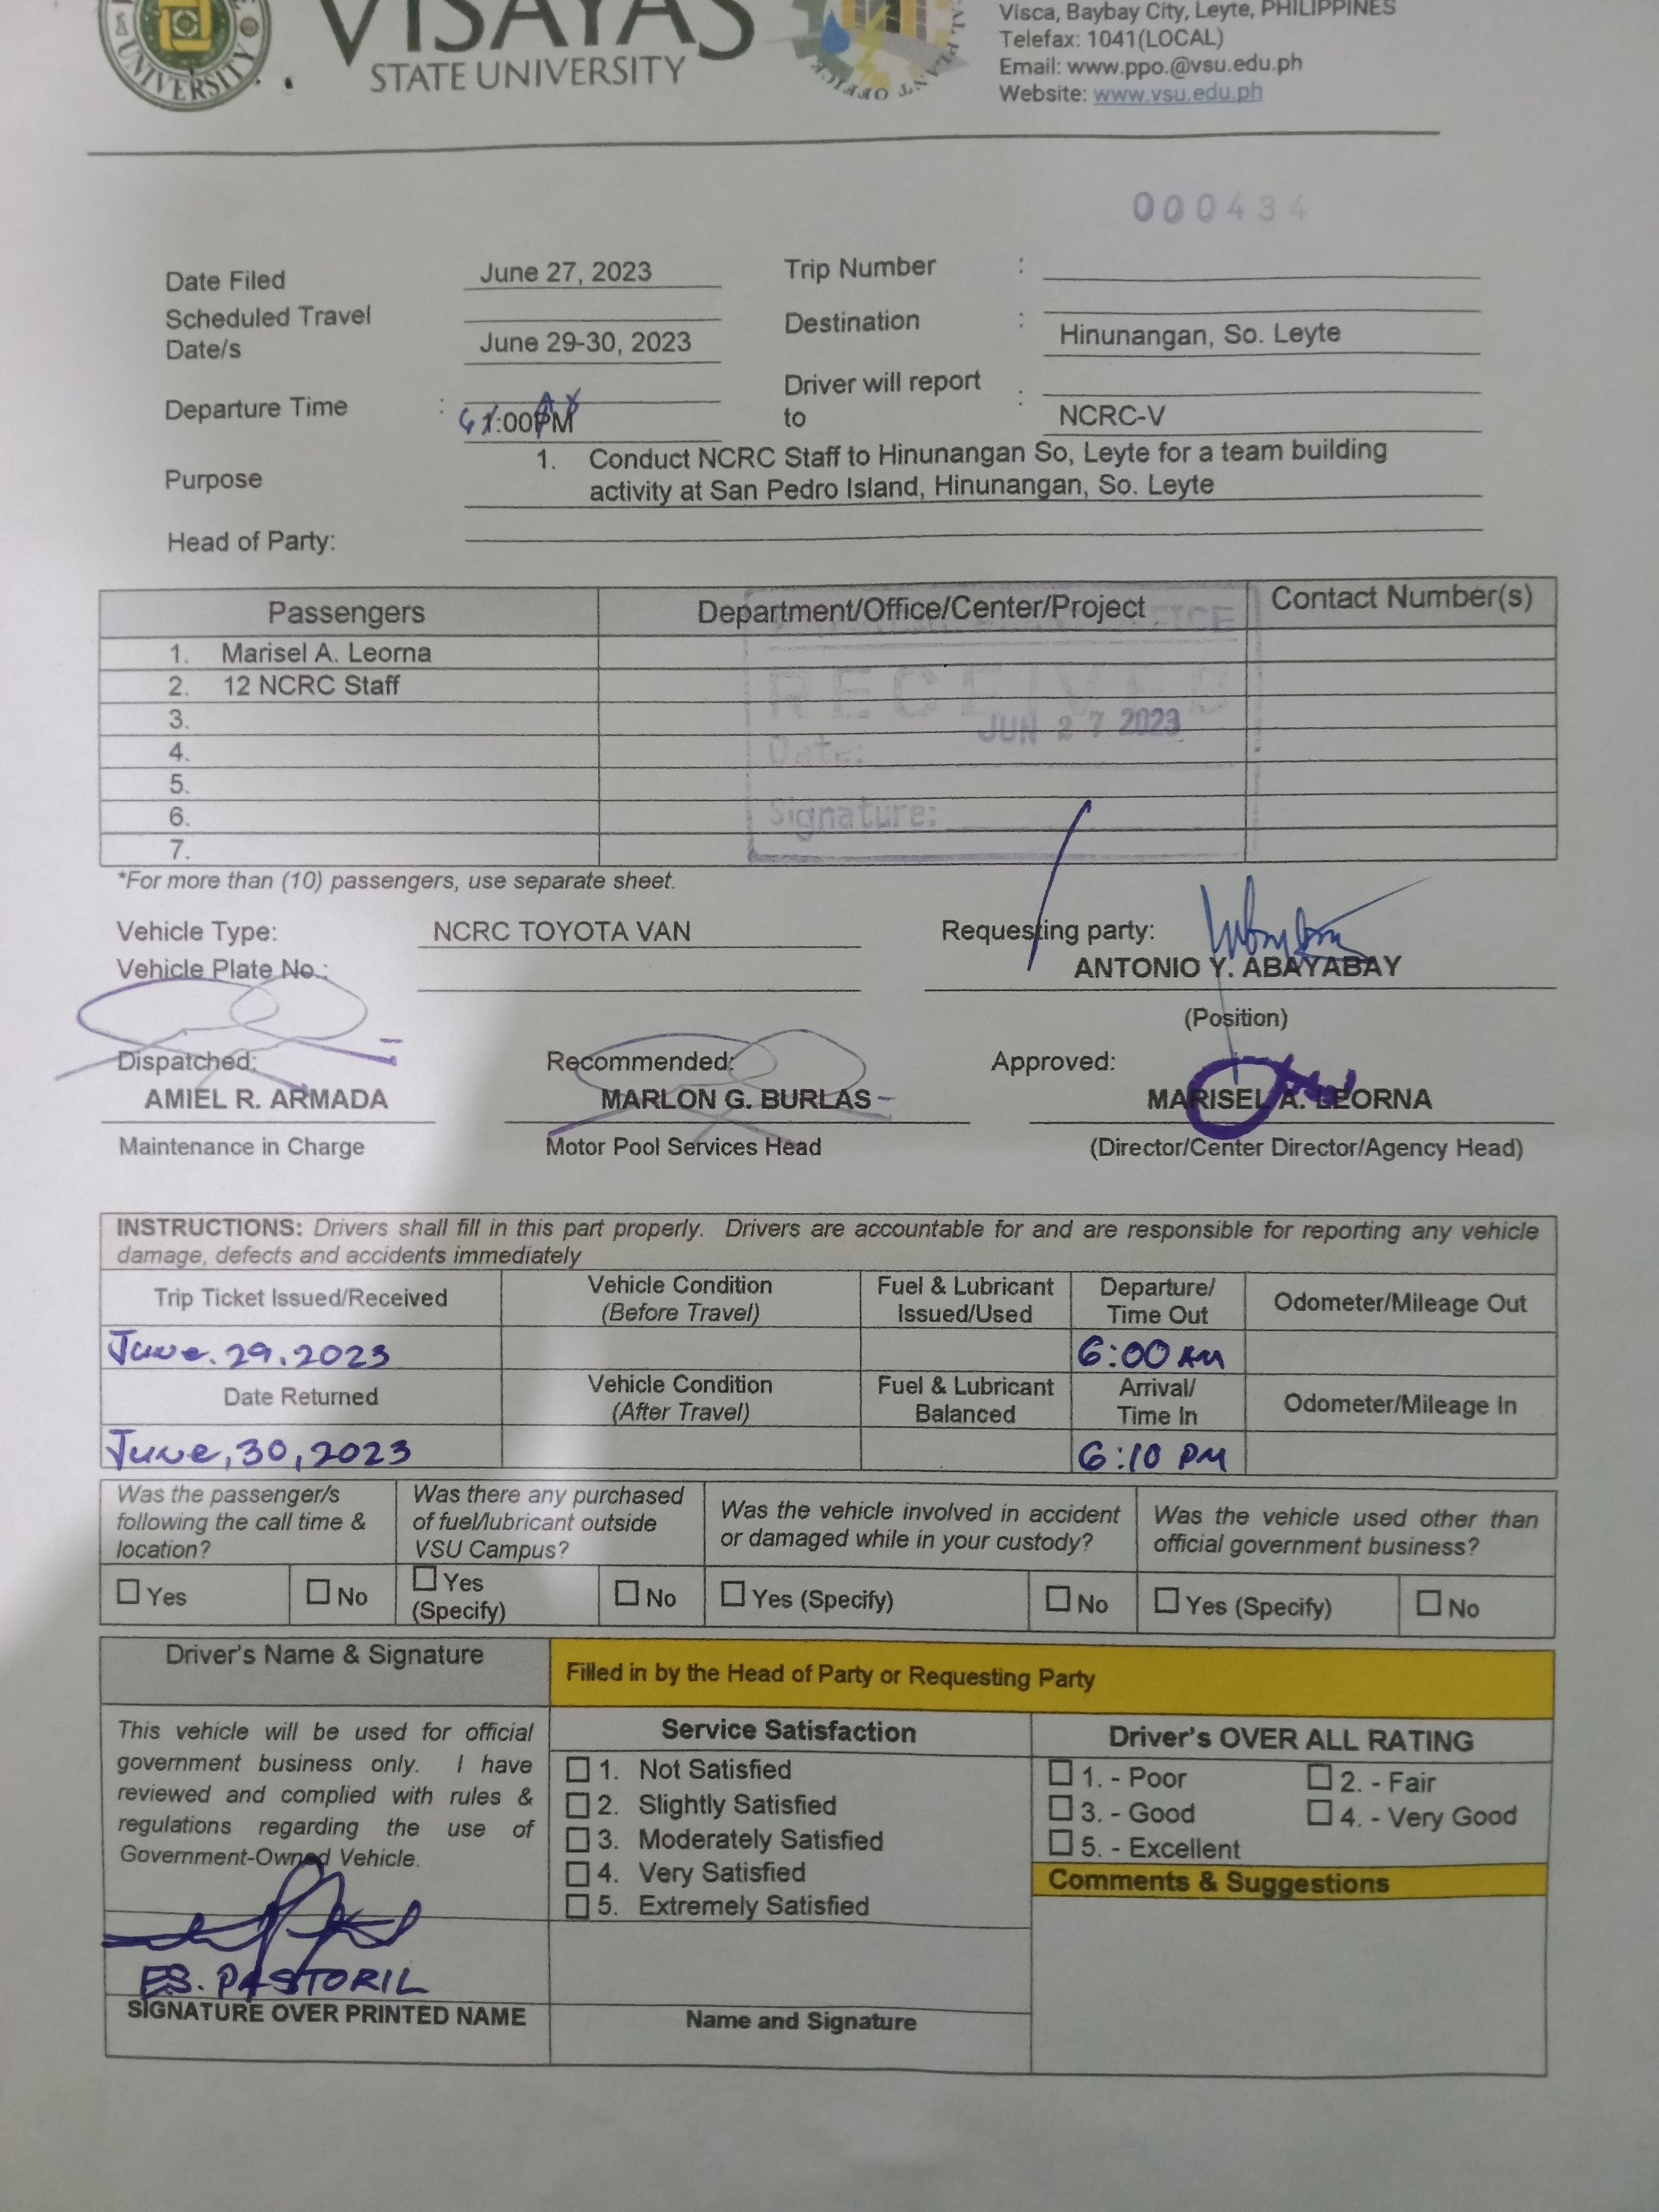 VISAYAS
STATE UNIVERSITY
UNIVERSITY
Visca, Baybay City, Leyte, PHILIPPINES
Telefax: 1041(LOCAL)
Email: www.ppo.@vsu.edu.ph
Website: www.vsu.edu.ph
000434
Date Filed June 27, 2023 Trip Number :
Scheduled Travel Date/s June 29-30, 2023 Destination : Hinunangan, So. Leyte
Departure Time : 6 1:00PM A Driver will report to : NCRC-V
Purpose 1. Conduct NCRC Staff to Hinunangan So, Leyte for a team building
activity at San Pedro Island, Hinunangan, So. Leyte
Head of Party:
Passengers Department/Office/Center/Project Contact Number(s)
1. Marisel A. Leorna
2. 12 NCRC Staff
3.
4.
5.
6.
7.
RECEIVED
JUN 27 2023
Date:
Signature:
*For more than (10) passengers, use separate sheet.
Vehicle Type: NCRC TOYOTA VAN Requesting party:
Vehicle Plate No.: ANTONIO Y. ABAYABAY
(Position)
Dispatched: Recommended: Approved:
AMIEL R. ARMADA MARLON G. BURLAS MARISEL A. LEORNA
Maintenance in Charge Motor Pool Services Head (Director/Center Director/Agency Head)
INSTRUCTIONS: Drivers shall fill in this part properly. Drivers are accountable for and are responsible for reporting any vehicle
damage, defects and accidents immediately
Trip Ticket Issued/Received Vehicle Condition (Before Travel) Fuel & Lubricant Issued/Used Departure/ Time Out Odometer/Mileage Out
June. 29. 2023 6:00 AM
Date Returned Vehicle Condition (After Travel) Fuel & Lubricant Balanced Arrival/ Time In Odometer/Mileage In
June, 30, 2023 6:10 PM
Was the passenger/s following the call time & location? Was there any purchased of fuel/lubricant outside VSU Campus? Was the vehicle involved in accident or damaged while in your custody? Was the vehicle used other than official government business?
Yes No Yes (Specify) No Yes (Specify) No Yes (Specify) No
Driver's Name & Signature Filled in by the Head of Party or Requesting Party
This vehicle will be used for official
government business only. I have
reviewed and complied with rules &
regulations regarding the use of
Government-Owned Vehicle.
E.S. PASTORIL
SIGNATURE OVER PRINTED NAME
Service Satisfaction
1. Not Satisfied
2. Slightly Satisfied
3. Moderately Satisfied
4. Very Satisfied
5. Extremely Satisfied
Name and Signature
Driver's OVER ALL RATING
1. - Poor 2. - Fair
3. - Good 4. - Very Good
5. - Excellent
Comments & Suggestions